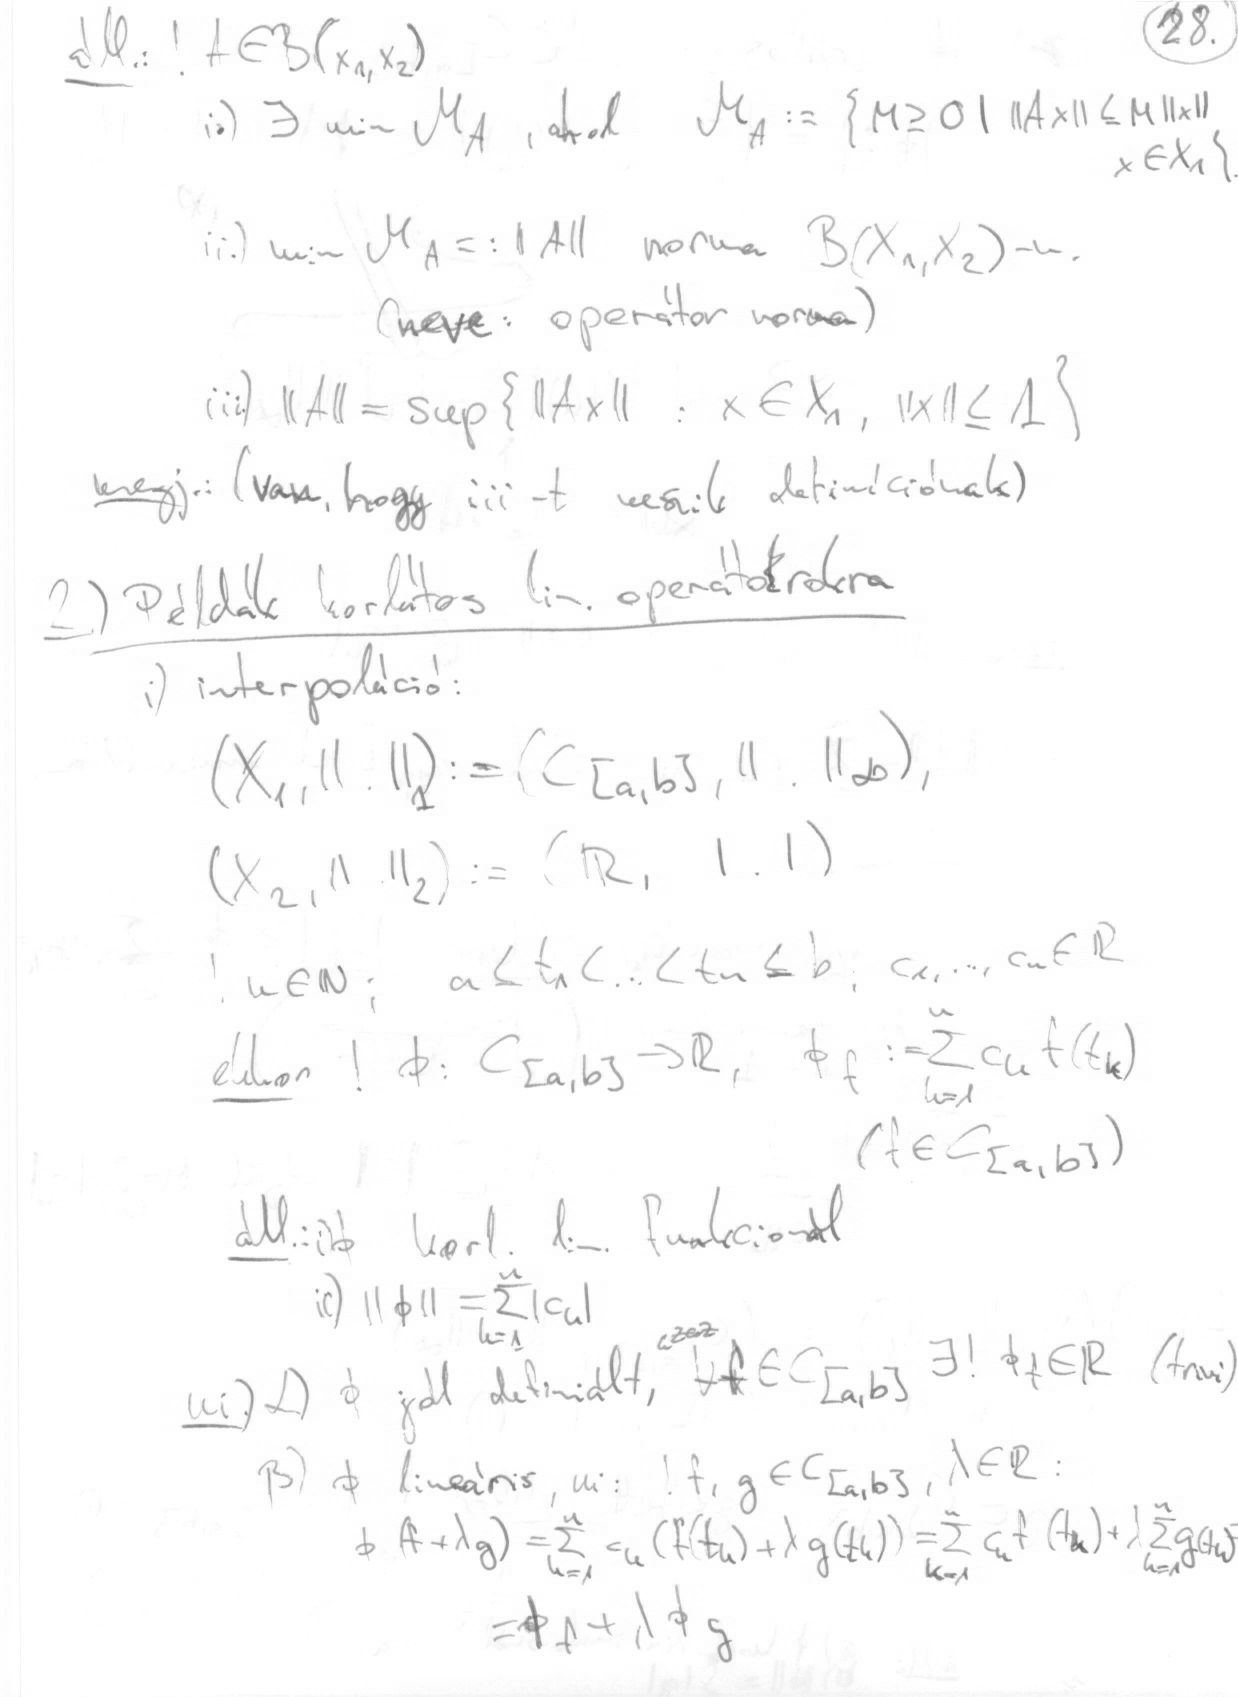 28.
áll.: ! A ∈ B(X₁, X₂)
i.) ∃ min M_A, ahol M_A := {M ≥ 0 | ||Ax|| ≤ M ||x||
x ∈ X₁}.
ii.) min M_A =: ||A|| norma B(X₁, X₂)-n.
(neve: operátor norma)
iii.) ||A|| = sup{ ||Ax|| : x ∈ X₁, ||x|| ≤ 1 }
megj.: (van, hogy iii-t veszik definíciónak)
2.) Példák korlátos lin. operátorokra
i) interpoláció:
(X₁, || . ||₁) := (C[a,b], || . ||∞),
(X₂, || . ||₂) := (ℝ, | . |)
! n ∈ ℕ; a ≤ t₁ < ... < tₙ ≤ b; c₁, ..., cₙ ∈ ℝ
ekkor ! ϕ: C[a,b] → ℝ, ϕf := ∑_{k=1}^{n} cₖ f(tₖ)
(f ∈ C[a,b])
áll.: i) ϕ korl. lin. funkcionál
ii) ||ϕ|| = ∑_{k=1}^{n} |cₖ|
ui.) α) ϕ jól definiált, azaz ∀f ∈ C[a,b] ∃! ϕf ∈ ℝ (trivi)
β) ϕ lineáris, ui: ! f, g ∈ C[a,b], λ ∈ ℝ:
ϕ(f + λg) = ∑_{k=1}^{n} cₖ (f(tₖ) + λ g(tₖ)) = ∑_{k=1}^{n} cₖ f(tₖ) + λ ∑_{k=1}^{n} g(tₖ) =
= ϕf + λ ϕg